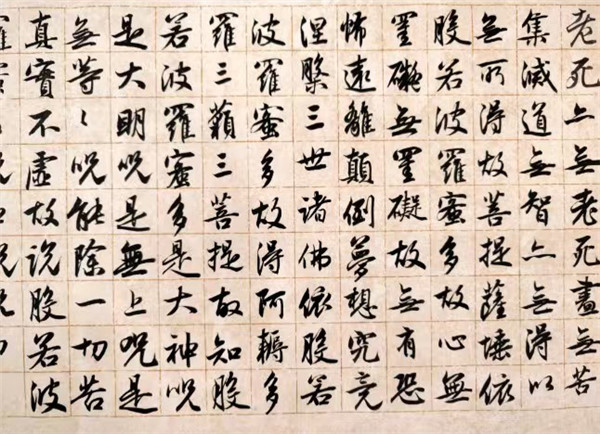 老死亦無老死盡無苦
集滅道無智亦無得以
無所得故菩提薩埵依
般若波羅蜜多故心無
罣礙無罣礙故無有恐
怖遠離顛倒夢想究竟
涅槃三世諸佛依般若
波羅蜜多故得阿耨多
羅三藐三菩提故知般
若波羅蜜多是大神呪
是大明呪是無上呪是
無等〻呪能除一切苦
真實不虛故說般若波